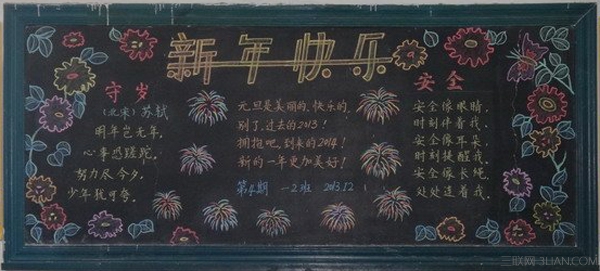 新年快乐
守岁
(北宋) 苏轼
明年岂无年,
心事恐蹉跎,
努力尽今夕,
少年犹可夸。
元旦是美丽的、快乐的,
别了,过去的2013!
拥抱吧,到来的2014!
新的一年更加美好!
第4期 一2班 2013.12
安全
安全像眼睛,
时刻伴着我,
安全像耳朵,
时刻提醒我,
安全像长绳,
处处连着我。
三联网 3LIAN.COM